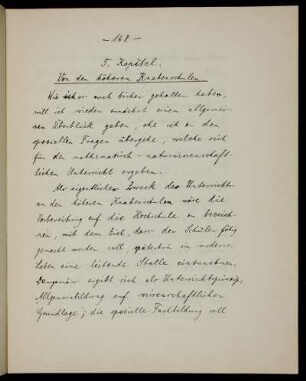 - 148 -
5. Kapitel.
Von den höheren Knabenschulen.
Wie ich es auch bisher gehalten haben,
will ich wieder zunächst einen allgemei-
nen Überblick geben, ehe ich zu den
speziellen Fragen übergehe, welche sich
für den mathematisch-naturwissenschaft-
lichen Unterricht ergeben.
Als eigentlicher Zweck des Unterrichts
an den höheren Knabenschulen wäre die
Vorbereitung auf die Hochschule zu bezeich-
nen, mit dem Ziel, dass der Schüler fähig
gemacht werden soll, späterhin im modernen
Leben eine leitende Stelle einzunehmen.
Demgemäss ergibt sich als Unterrichtsprinzip
Allgemeinbildung auf wissenschaftlicher
Grundlage; die spezielle Fachbildung soll